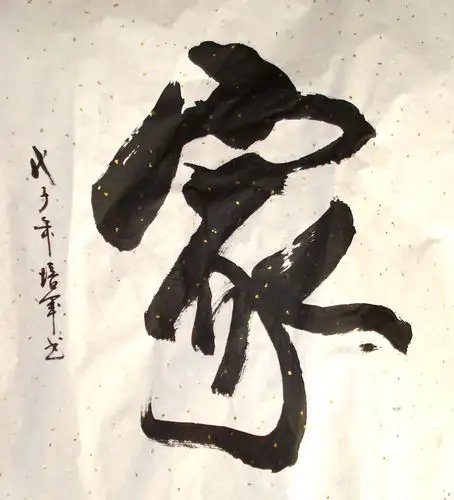 家
戊子年培军书